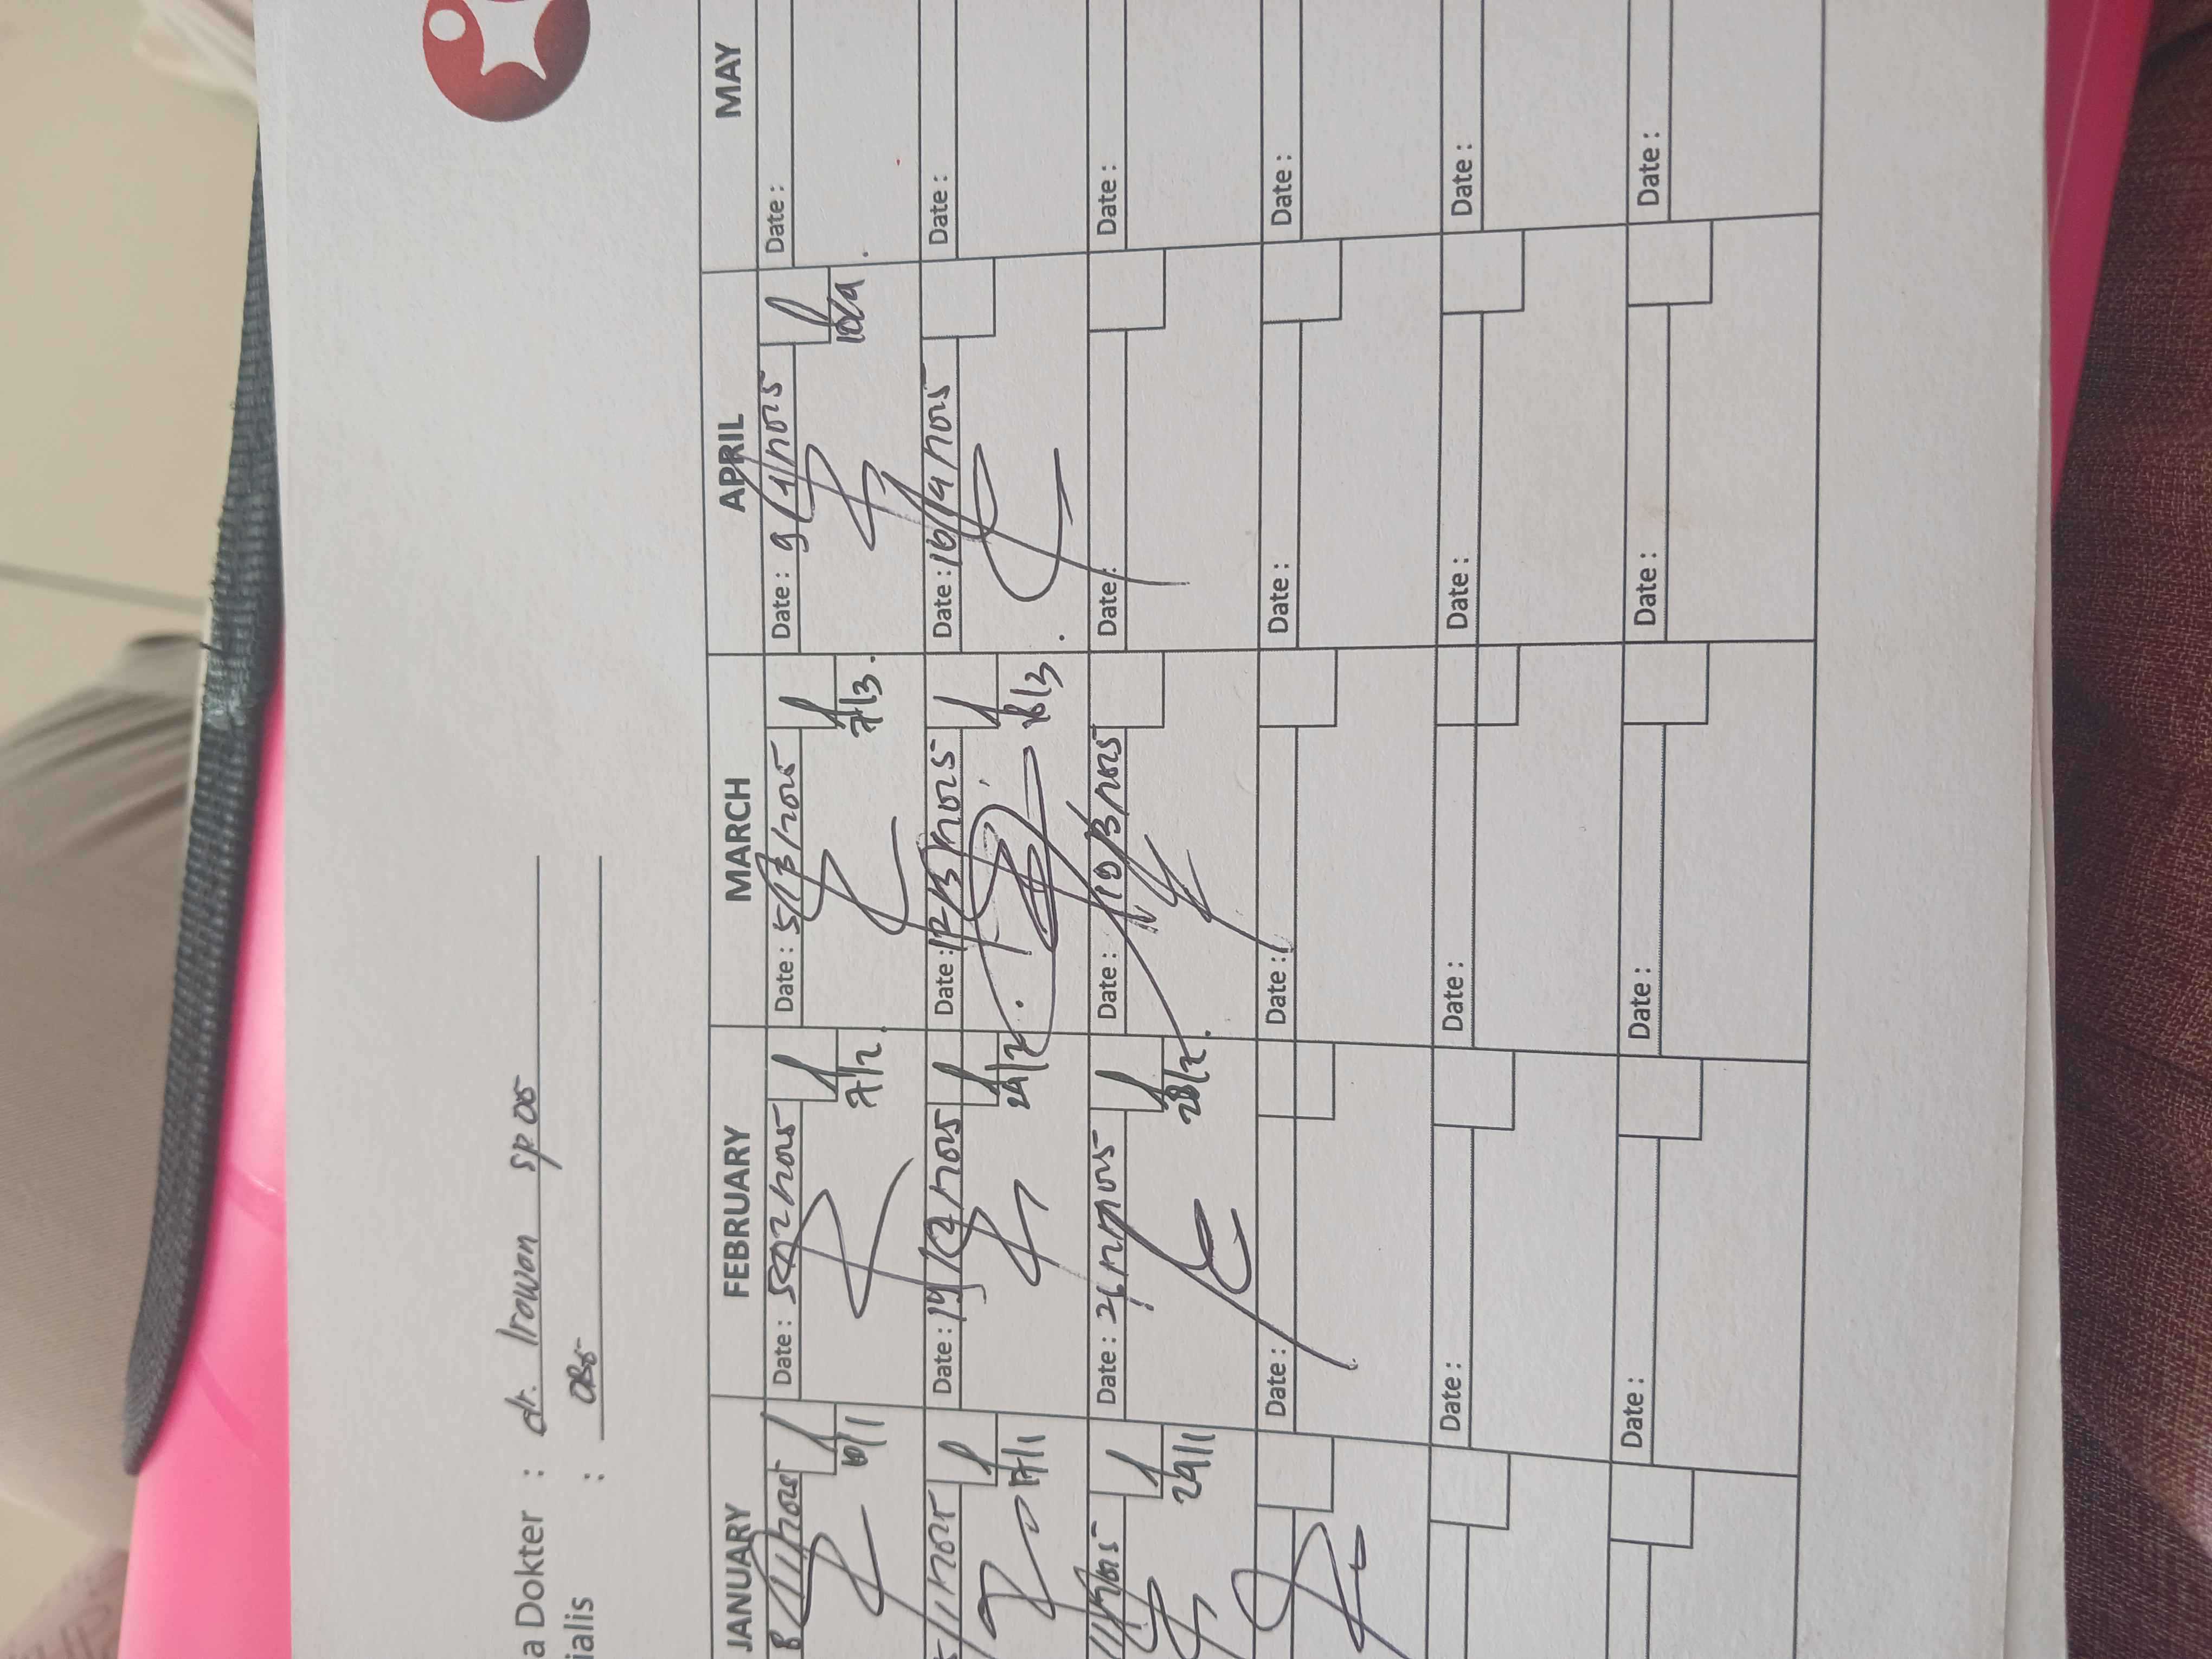 a Dokter : dr. Irawan SP. OG
ialis : OBG
JANUARY FEBRUARY MARCH APRIL MAY
8/1/2025 Date : 5/2/2025 Date : 5/3/2025 Date : 9/4/2025 Date :
10/1 7/2 7/3 10/4
/1/2025 Date : 19/2/2025 Date : 12/3/2025 Date : 16/4/2025 Date :
17/1 /3
/1/2025 Date : 26/2/2025 Date : 19/3/2025 Date : Date :
24/1 28/2
Date : Date : Date : Date :
Date : Date : Date : Date :
Date : Date : Date : Date :